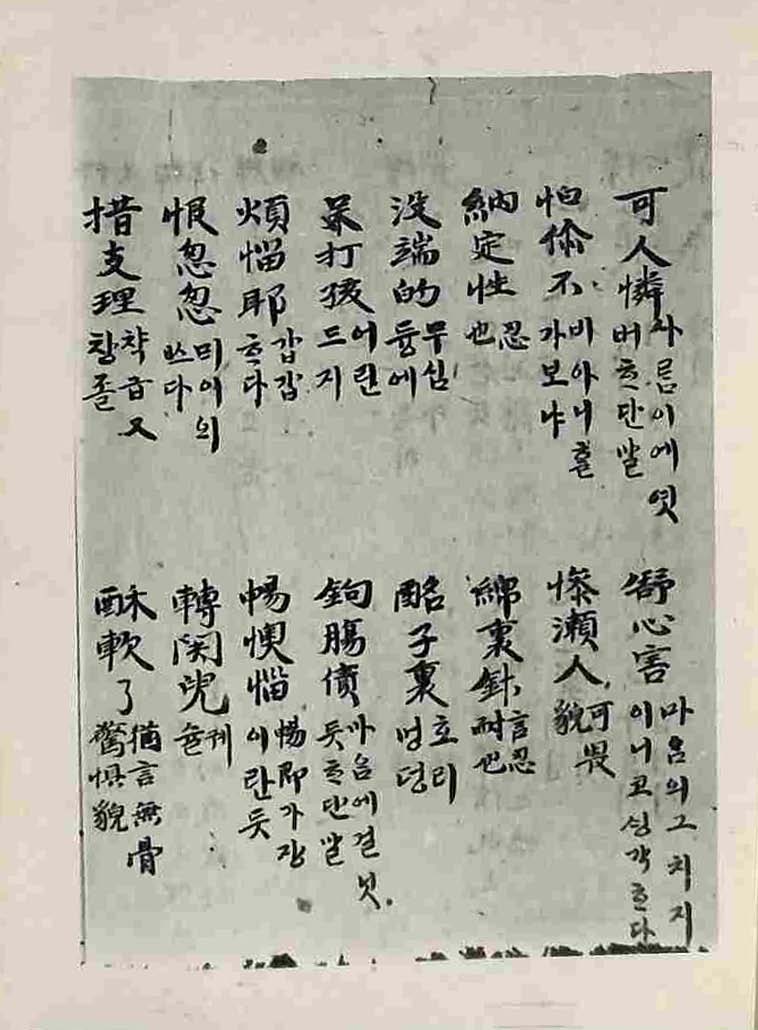 可人憐 사름이에엿버ᄒᆞ단말 舒心害 마음의그치지이니코싱각ᄒᆞ다
怕偸不 비아니홀가보냐 慘瀨人 可畏貌
納定性 忍也 綿裏針 言忍耐也
没端的 무심듕에 酩子裏 호리멍덩
呆打孩 어린드지 鉤腸債 마음에걸닛듯ᄒᆞ단말
煩惱耶 갑갑ᄒᆞ다 暢懊惱 暢即가장이란듯
恨忽忽 믜이의ᄯᅳ다 轉関兒
措支理 챡급又창졸 酥軟了 猶言無骨驚惧貌